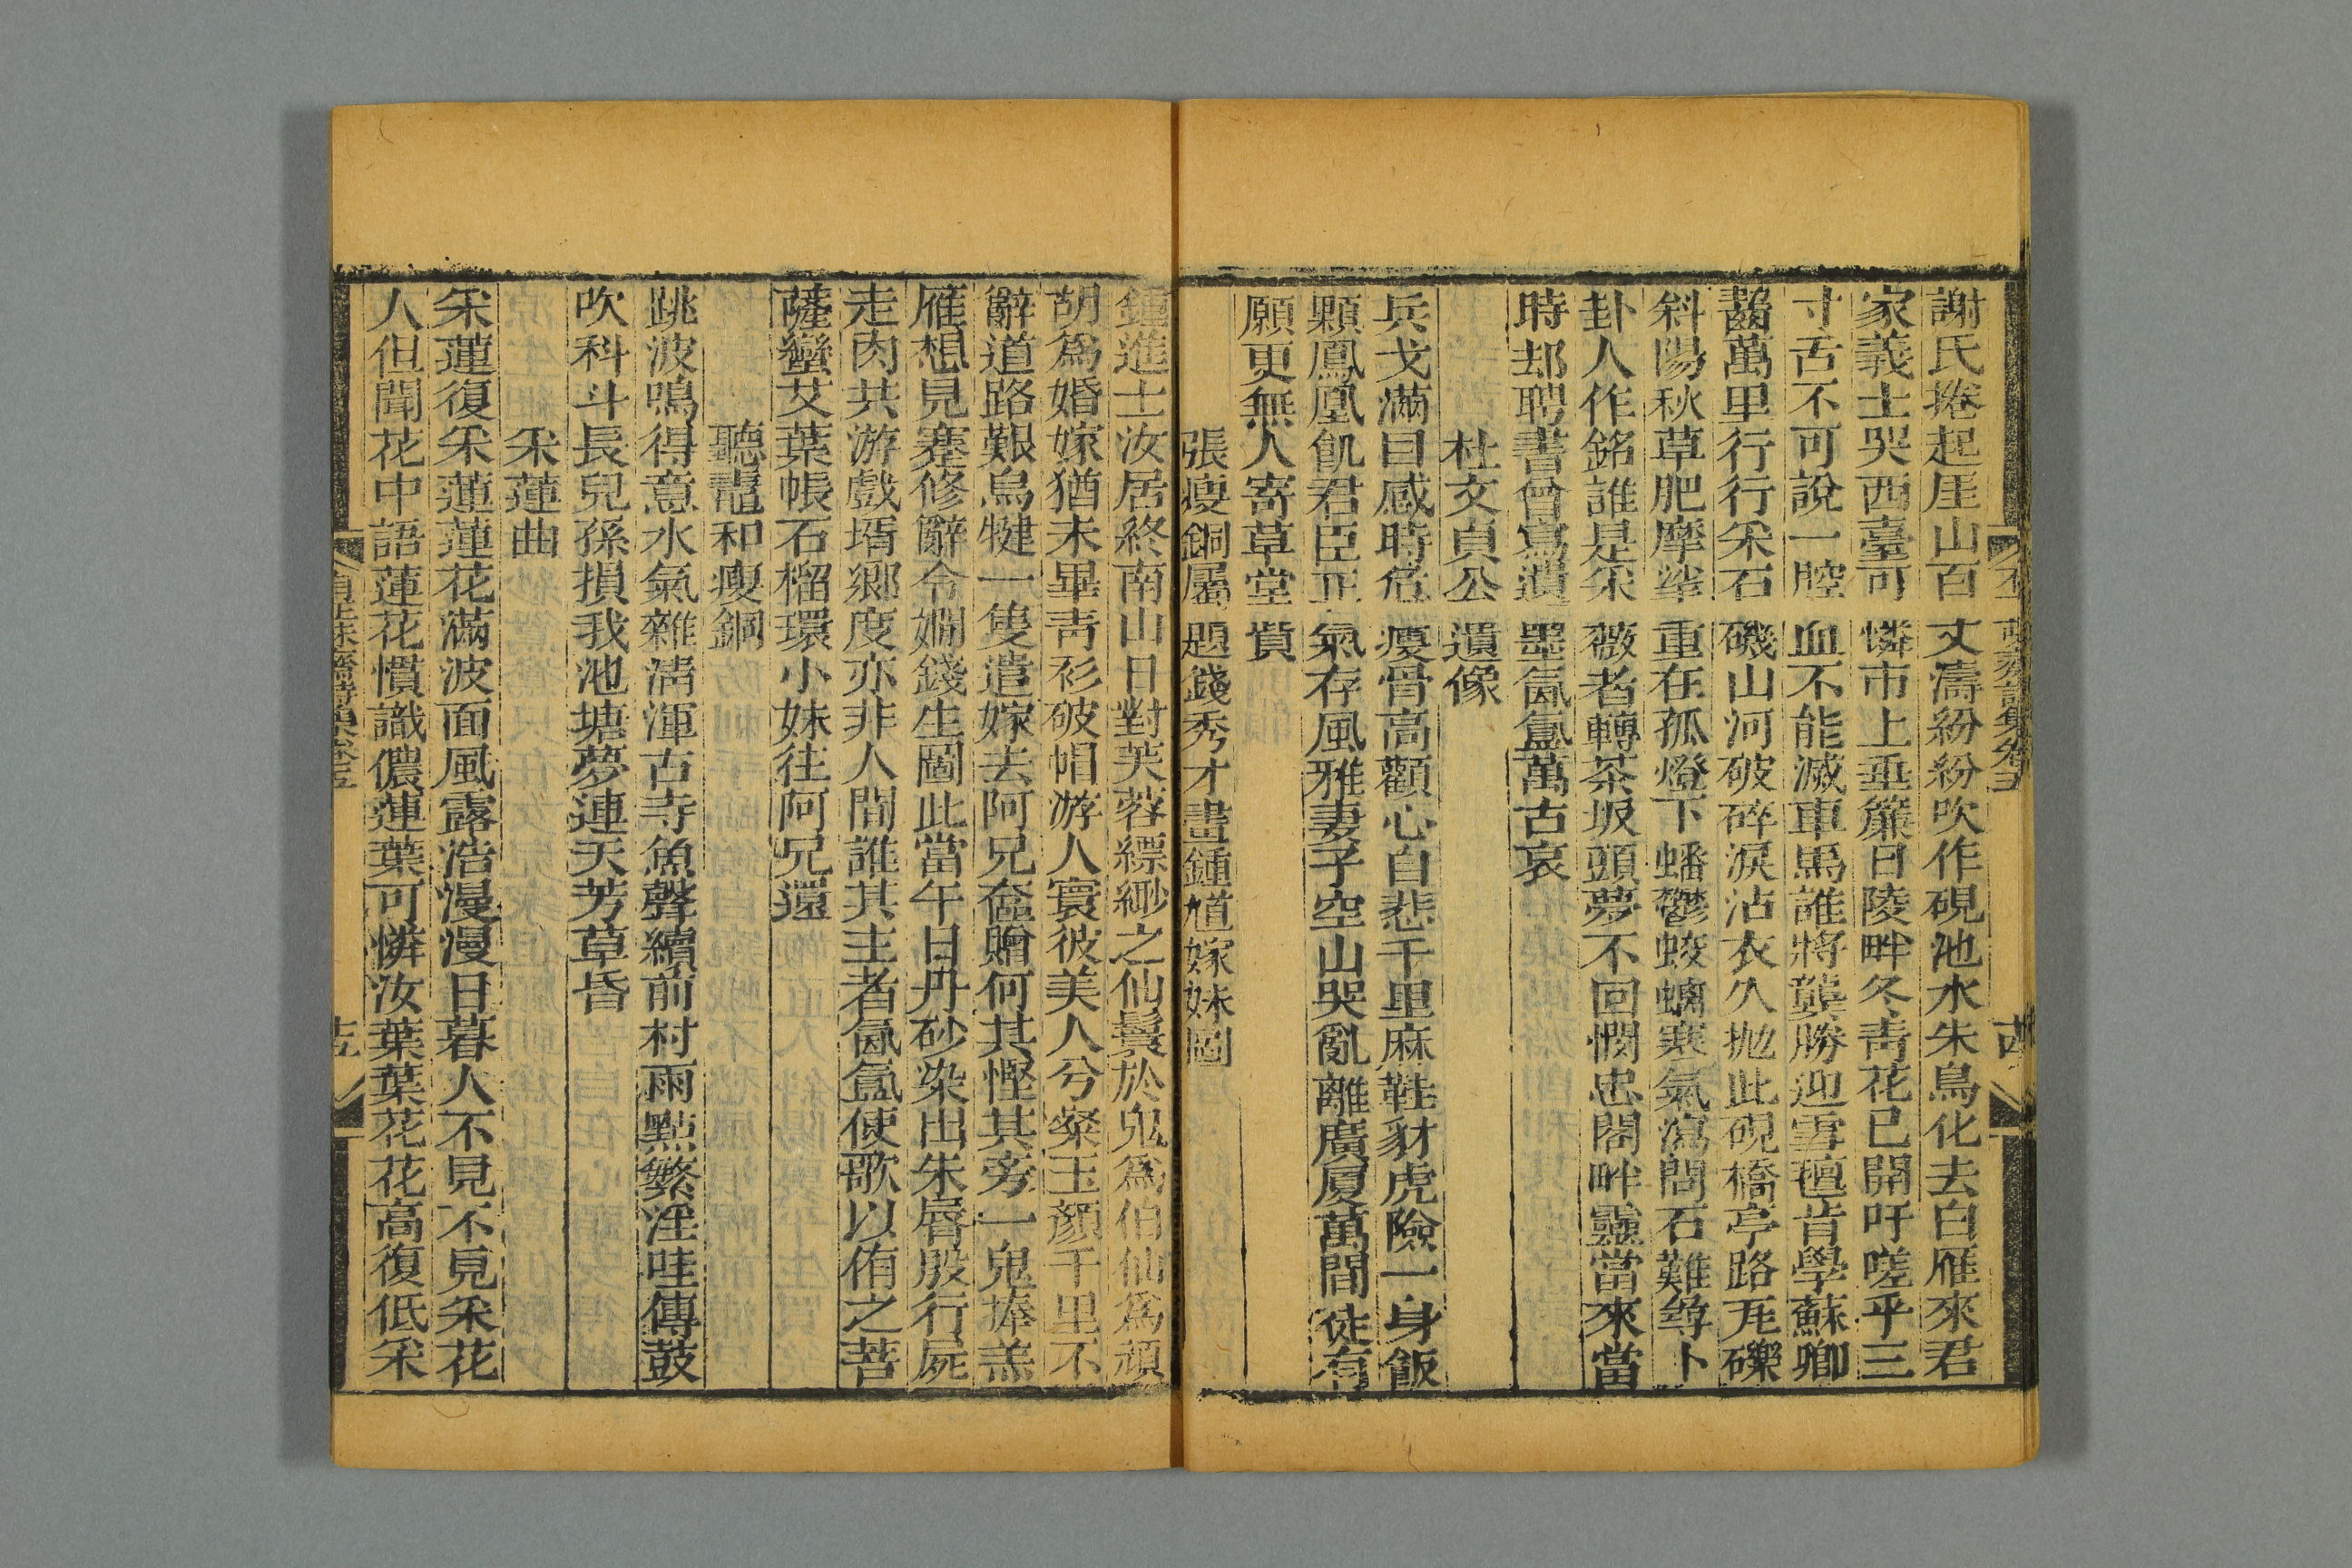 謝氏捲起厓山百丈濤紛紛吹作硯池水朱鳥化去白雁來君
家義士哭西臺可憐市上垂簾日陵畔冬青花已開吁嗟乎三
寸舌不可說一腔血不能滅車馬誰將龔勝迎雪氊肯學蘇卿
齧萬里行行采石磯山河破碎淚沾衣久抛此硯橋亭路瓦礫
斜陽秋草肥摩挲重在孤燈下蟠鬱蛟螭寒氣瀉問石難尋卜
卦人作銘誰是采薇者轉茶坂頭夢不回憫忠閣畔靈當來當
時却聘書曾寫遺墨氤氳萬古哀
杜文貞公遺像
兵戈滿目感時危瘦骨高顴心自悲千里麻鞋豺虎險一身飯
顆鳳凰飢君臣正氣存風雅妻子空山哭亂離廣厦萬間徒有
願更無人寄草堂貲
張瘦銅屬題錢秀才畫鍾馗嫁妹圖
鍾進士汝居終南山日對芙蓉縹緲之仙鬟於鬼爲伯仙爲頑
胡爲婚嫁猶未畢青衫破帽游人寰彼美人兮粲玉顏千里不
辭道路艱烏犍一隻遣嫁去阿兄奩贈何其慳其旁一鬼捧羔
雁想見蹇修辭令嫺錢生圖此當午日丹砂染出朱脣殷行屍
走肉共游戲壻鄉度亦非人間誰其主者氤氳使歌以侑之菩
薩蠻艾葉帳石榴環小妹往阿兄還
聽鼃和瘦銅
跳波鳴得意水氣雜淸渾古寺魚聲續前村雨點繁淫哇傳鼓
吹科斗長兒孫損我池塘夢連天芳草昏
采蓮曲
采蓮復采蓮蓮花滿波面風露浩漫漫日暮人不見不見采花
人但聞花中語蓮花慣識儂蓮葉可憐汝葉葉花花高復低采